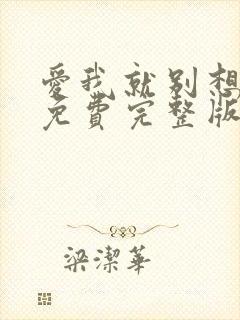 愛我就別想
免費完整版
梁潔華